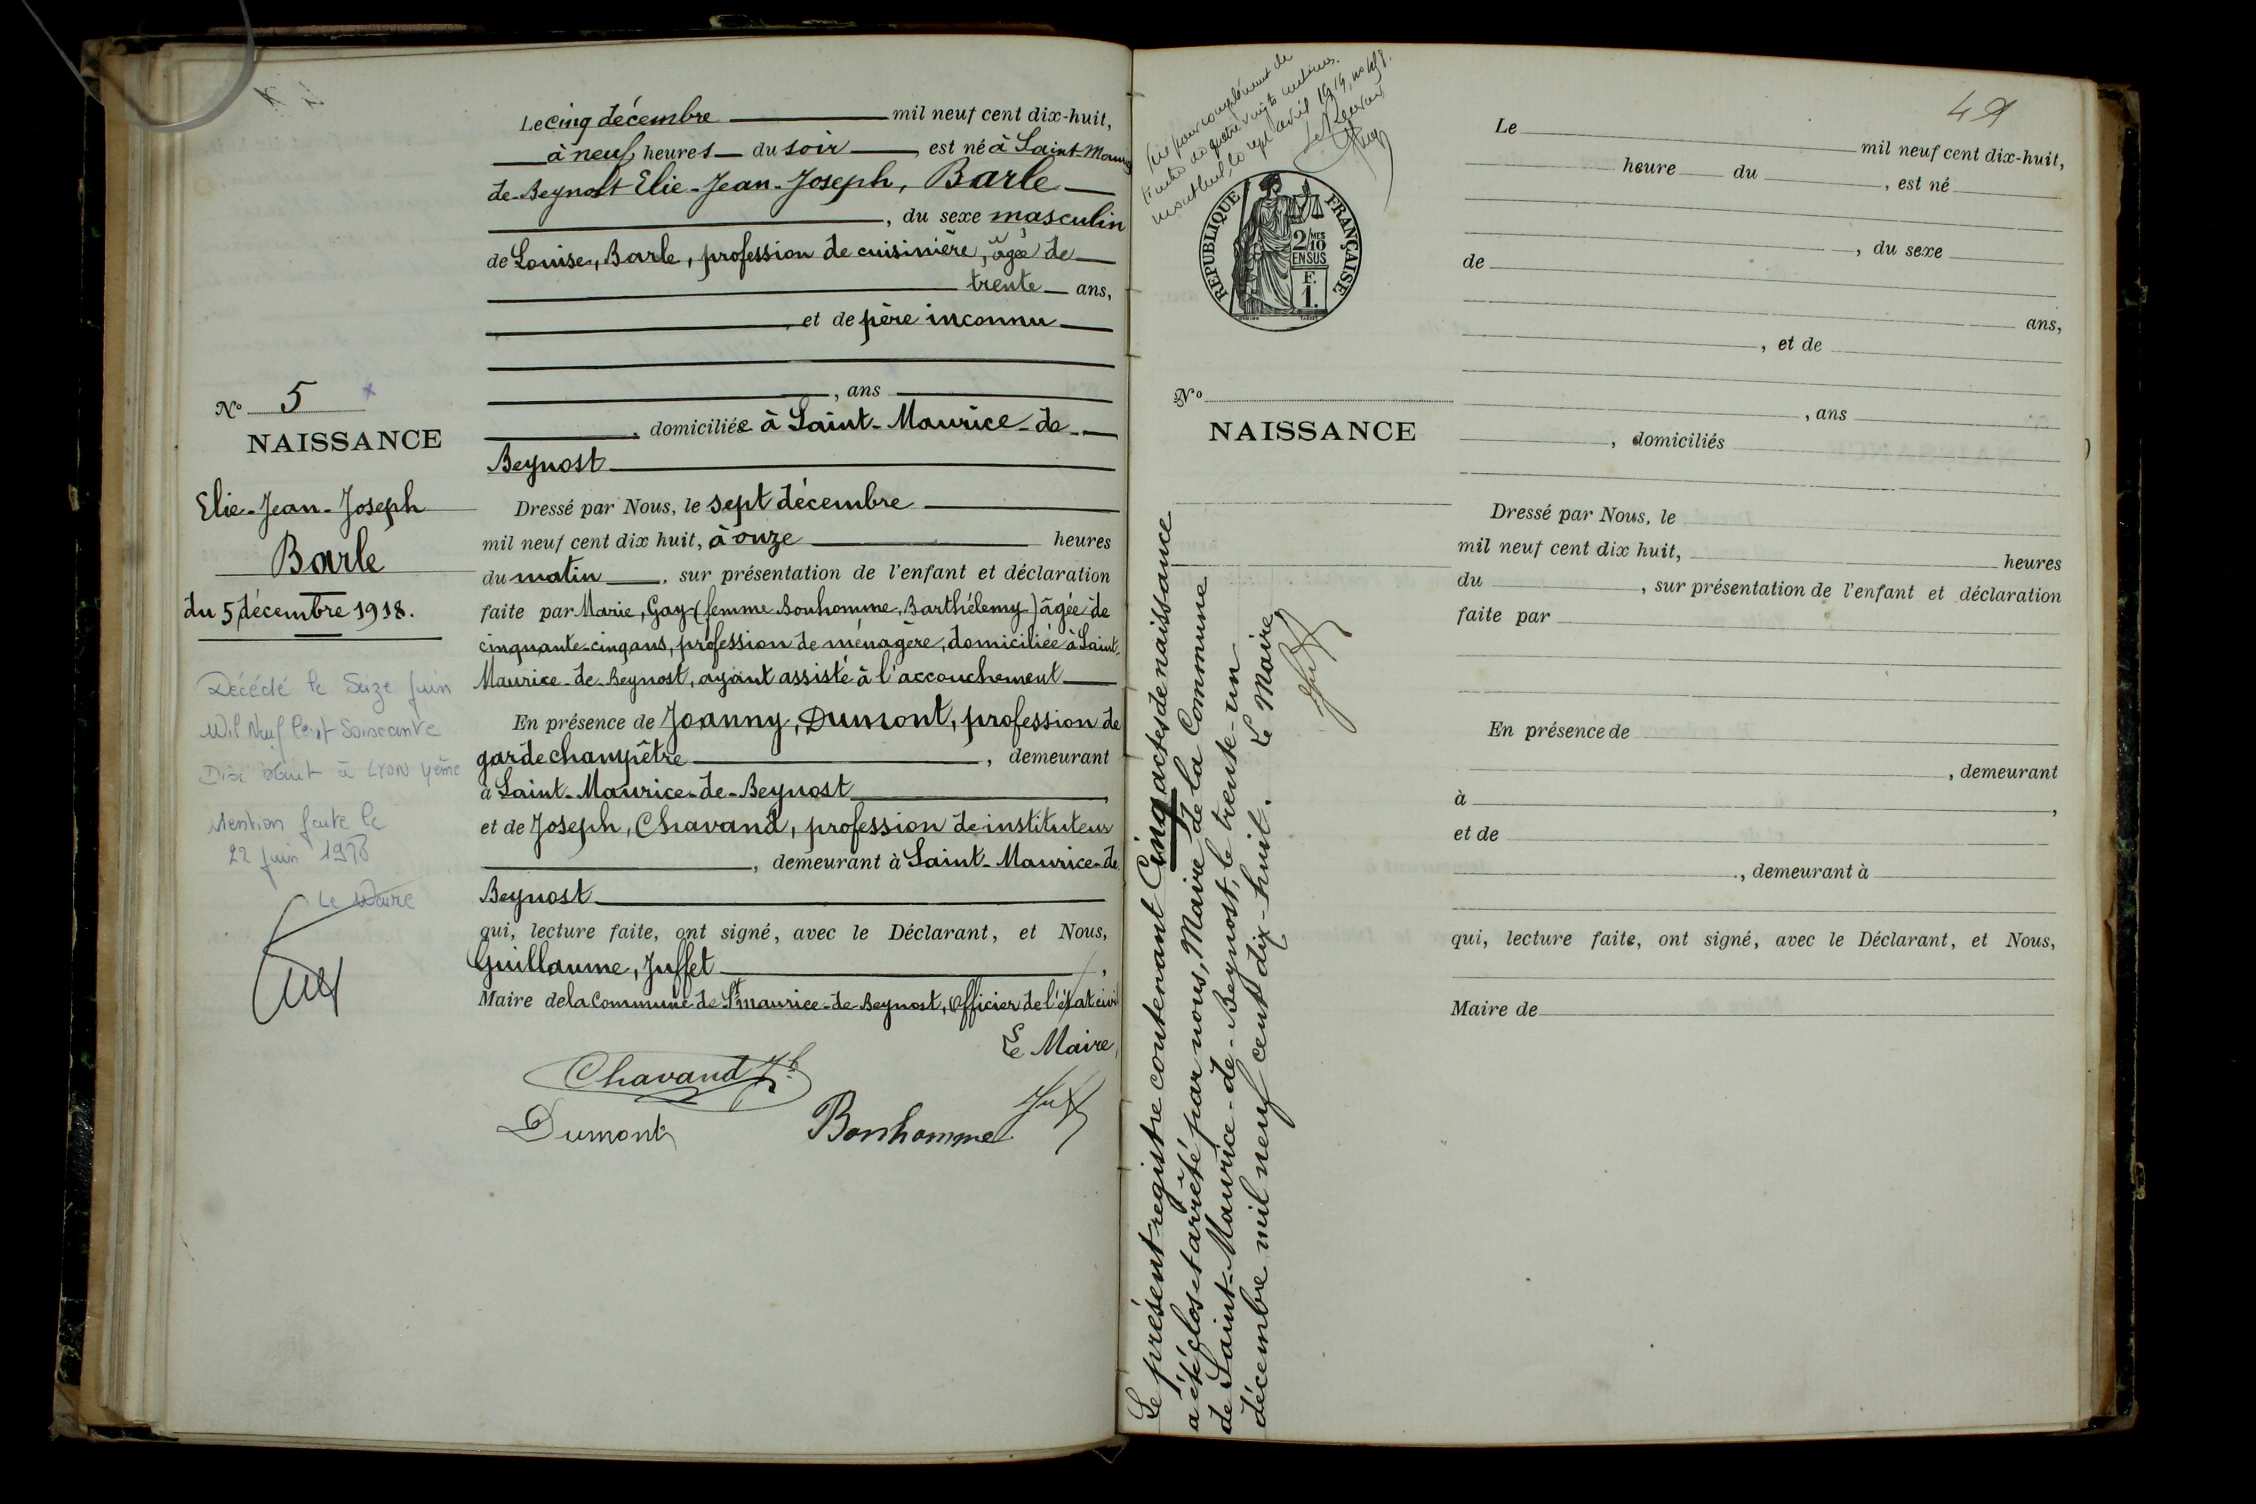 Le cinq décembre mil neuf cent dix-huit,
à neuf heures du soir, est né à Saint-Maurice
de-Beynost Elie-Jean-Joseph, Barle
, du sexe masculin
de Louise, Barle, profession de cuisinière, âgée de
trente ans,
, et de père inconnu
, ans
, domiciliée à Saint-Maurice-de-
Beynost
Dressé par Nous, le sept décembre
mil neuf cent dix huit, à onze heures
du matin, sur présentation de l'enfant et déclaration
faite par Marie, Gay (femme Bonhomme, Barthélemy) âgée de
cinquante-cinq ans, profession de ménagère, domiciliée à Saint-
Maurice-de-Beynost, ayant assisté à l'accouchement
En présence de Joanny, Dumont, profession de
garde champêtre, demeurant
à Saint-Maurice-de-Beynost,
et de Joseph, Chavand, profession de instituteur
, demeurant à Saint-Maurice-de
Beynost
qui, lecture faite, ont signé, avec le Déclarant, et Nous,
Guillaume, Juffet,
Maire de la Commune de St Maurice-de-Beynost, Officier de l'état civil
Le Maire,
Chavand Jh
Dumont
Bonhomme
No 5
NAISSANCE
Elie-Jean-Joseph
Barle
du 5 décembre 1918.
Décédé le Seize juin
Mil Neuf Cent Soixante
Dix Huit à LYON 4ème
Mention faite le
22 juin 1978
Le Maire
Le présent registre contenant Cinq actes de naissance
a été clos et arrêté par nous, Maire de la Commune
de Saint-Maurice-de-Beynost, le trente-un
décembre mil neuf cent dix-huit. Le Maire
pour complément de
de quatre vingts centimes.
avril 1919,
RÉPUBLIQUE FRANÇAISE
2/10 MES
EN SUS
F.
1.
No
NAISSANCE
49
Le mil neuf cent dix-huit,
heure du, est né
, du sexe
de
ans,
, et de
, ans
, domiciliés
Dressé par Nous, le
mil neuf cent dix huit, heures
du, sur présentation de l'enfant et déclaration
faite par
En présence de
, demeurant
à,
et de
, demeurant à
qui, lecture faite, ont signé, avec le Déclarant, et Nous,
Maire de